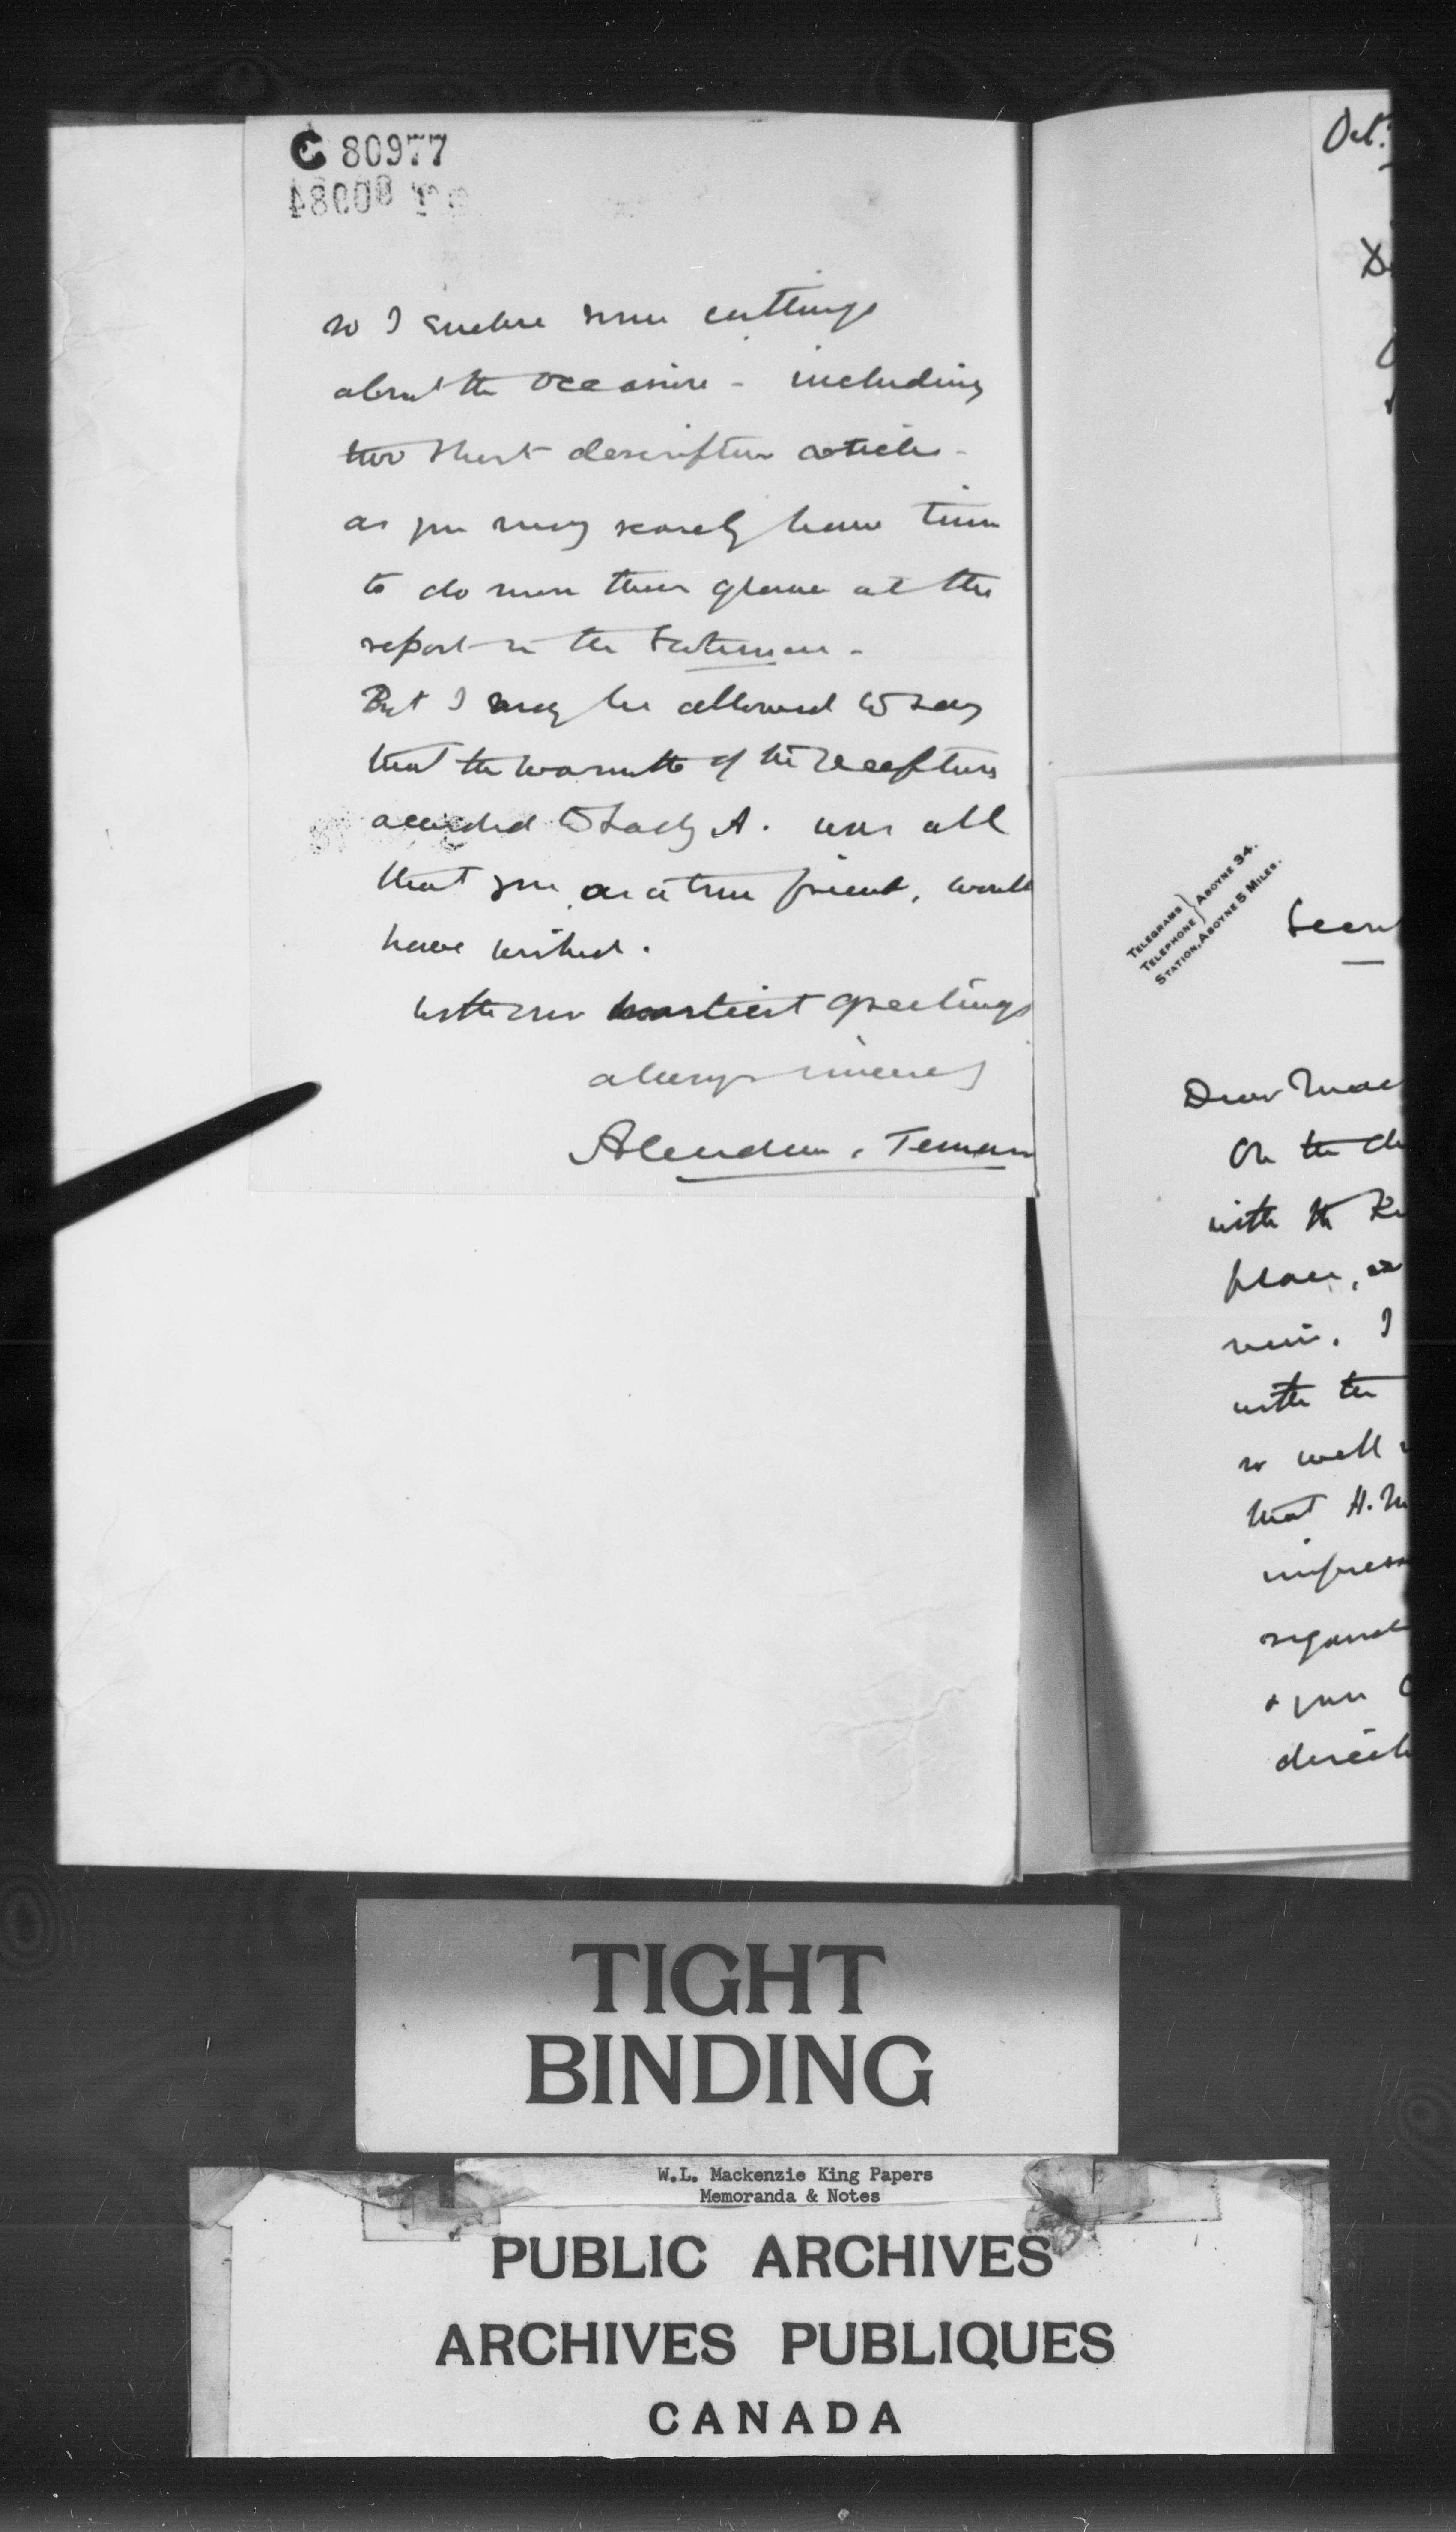 C 80977
so I enclose some cuttings
about the occasion - including
two short descriptive articles -
as you may scarcely have time
to do more than glance at the
report in the Scotsman -
But I may be allowed to say
that the warmth of the reception
accorded to Lady A. was all
that you, as a true friend, would
have wished.
With our heartiest greetings
always sincerely
Aberdeen & Temair
Oct.
TELEGRAMS
TELEPHONE } ABOYNE 34.
STATION, ABOYNE 5 MILES.
Dear Mac
On the
with the
place,
I
with the
so well
that H.M
impress
regard
& your
direct
TIGHT
BINDING
W.L. Mackenzie King Papers
Memoranda & Notes
PUBLIC ARCHIVES
ARCHIVES PUBLIQUES
CANADA